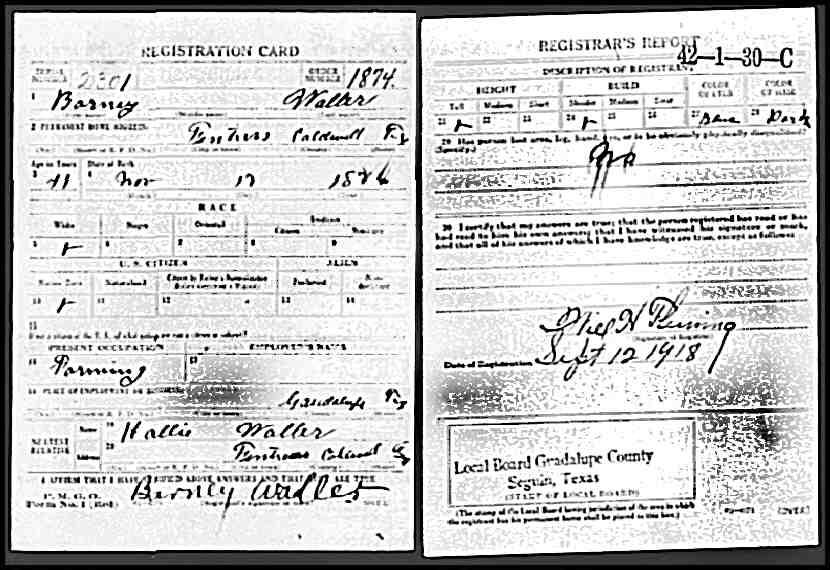 REGISTRATION CARD
SERIAL NUMBER 2301 ORDER NUMBER 1874
1 Barney Walter
2 PERMANENT HOME ADDRESS: Fentress Caldwell Tx
Age in Years Date of Birth
3 41 4 Nov 17 1876
RACE
White Negro Oriental Indian
Citizen
5 6 7 8 9
U. S. CITIZEN ALIEN
Native Born Naturalized Citizen by Father's Naturalization Declarant Non-declarant
10 11 12 13 14
15
PRESENT OCCUPATION EMPLOYER'S NAME
16 Farming 17
18 PLACE OF EMPLOYMENT OR BUSINESS:
Guadalupe Tx
NEAREST RELATIVE Name 19 Hallie Walter
Address 20 Fentress Caldwell Tx
I AFFIRM THAT I HAVE VERIFIED ABOVE ANSWERS AND THAT THEY ARE TRUE
P. M. G. O.
Form No. 1 (Red) Barney Walter
REGISTRAR'S REPORT
42-1-30-C
DESCRIPTION OF REGISTRANT
HEIGHT BUILD COLOR OF EYES COLOR OF HAIR
Tall Medium Short Slender Medium Stout
21 22 23 24 25 26 27 28 Dark
29 Has person lost arm, leg, hand, eye, or is he obviously physically disqualified?
(Specify.)
No
30 I certify that my answers are true; that the person registered has read or has
had read to him his own answers; that I have witnessed his signature or mark,
and that all of his answers of which I have knowledge are true, except as follows:
H Fleming
(Signature of Registrar)
Date of Registration Sept 12 1918
Local Board Guadalupe County
Seguin, Texas
(STAMP OF LOCAL BOARD)
(The stamp of the Local Board having jurisdiction of the area in which
the registrant has his permanent home shall be placed in this box.)